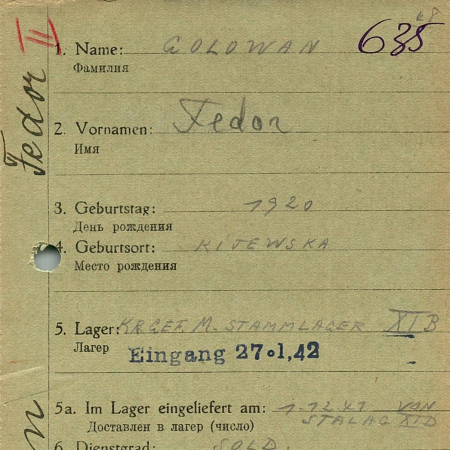 II
Fedor
635
1. Name: GOLOWAN
Фамилия
2. Vornamen: Fedor
Имя
3. Geburtstag: 1920
День рождения
4. Geburtsort: KIJEWSKA
Место рождения
5. Lager: KRGEF. M. STAMMLAGER XI B
Лагер
Eingang 27.1,42
5a. Im Lager eingeliefert am: 1.12.41 VON
Доставлен в лагер (число) STALAG XI D
6. Dienstgrad: SOLD.